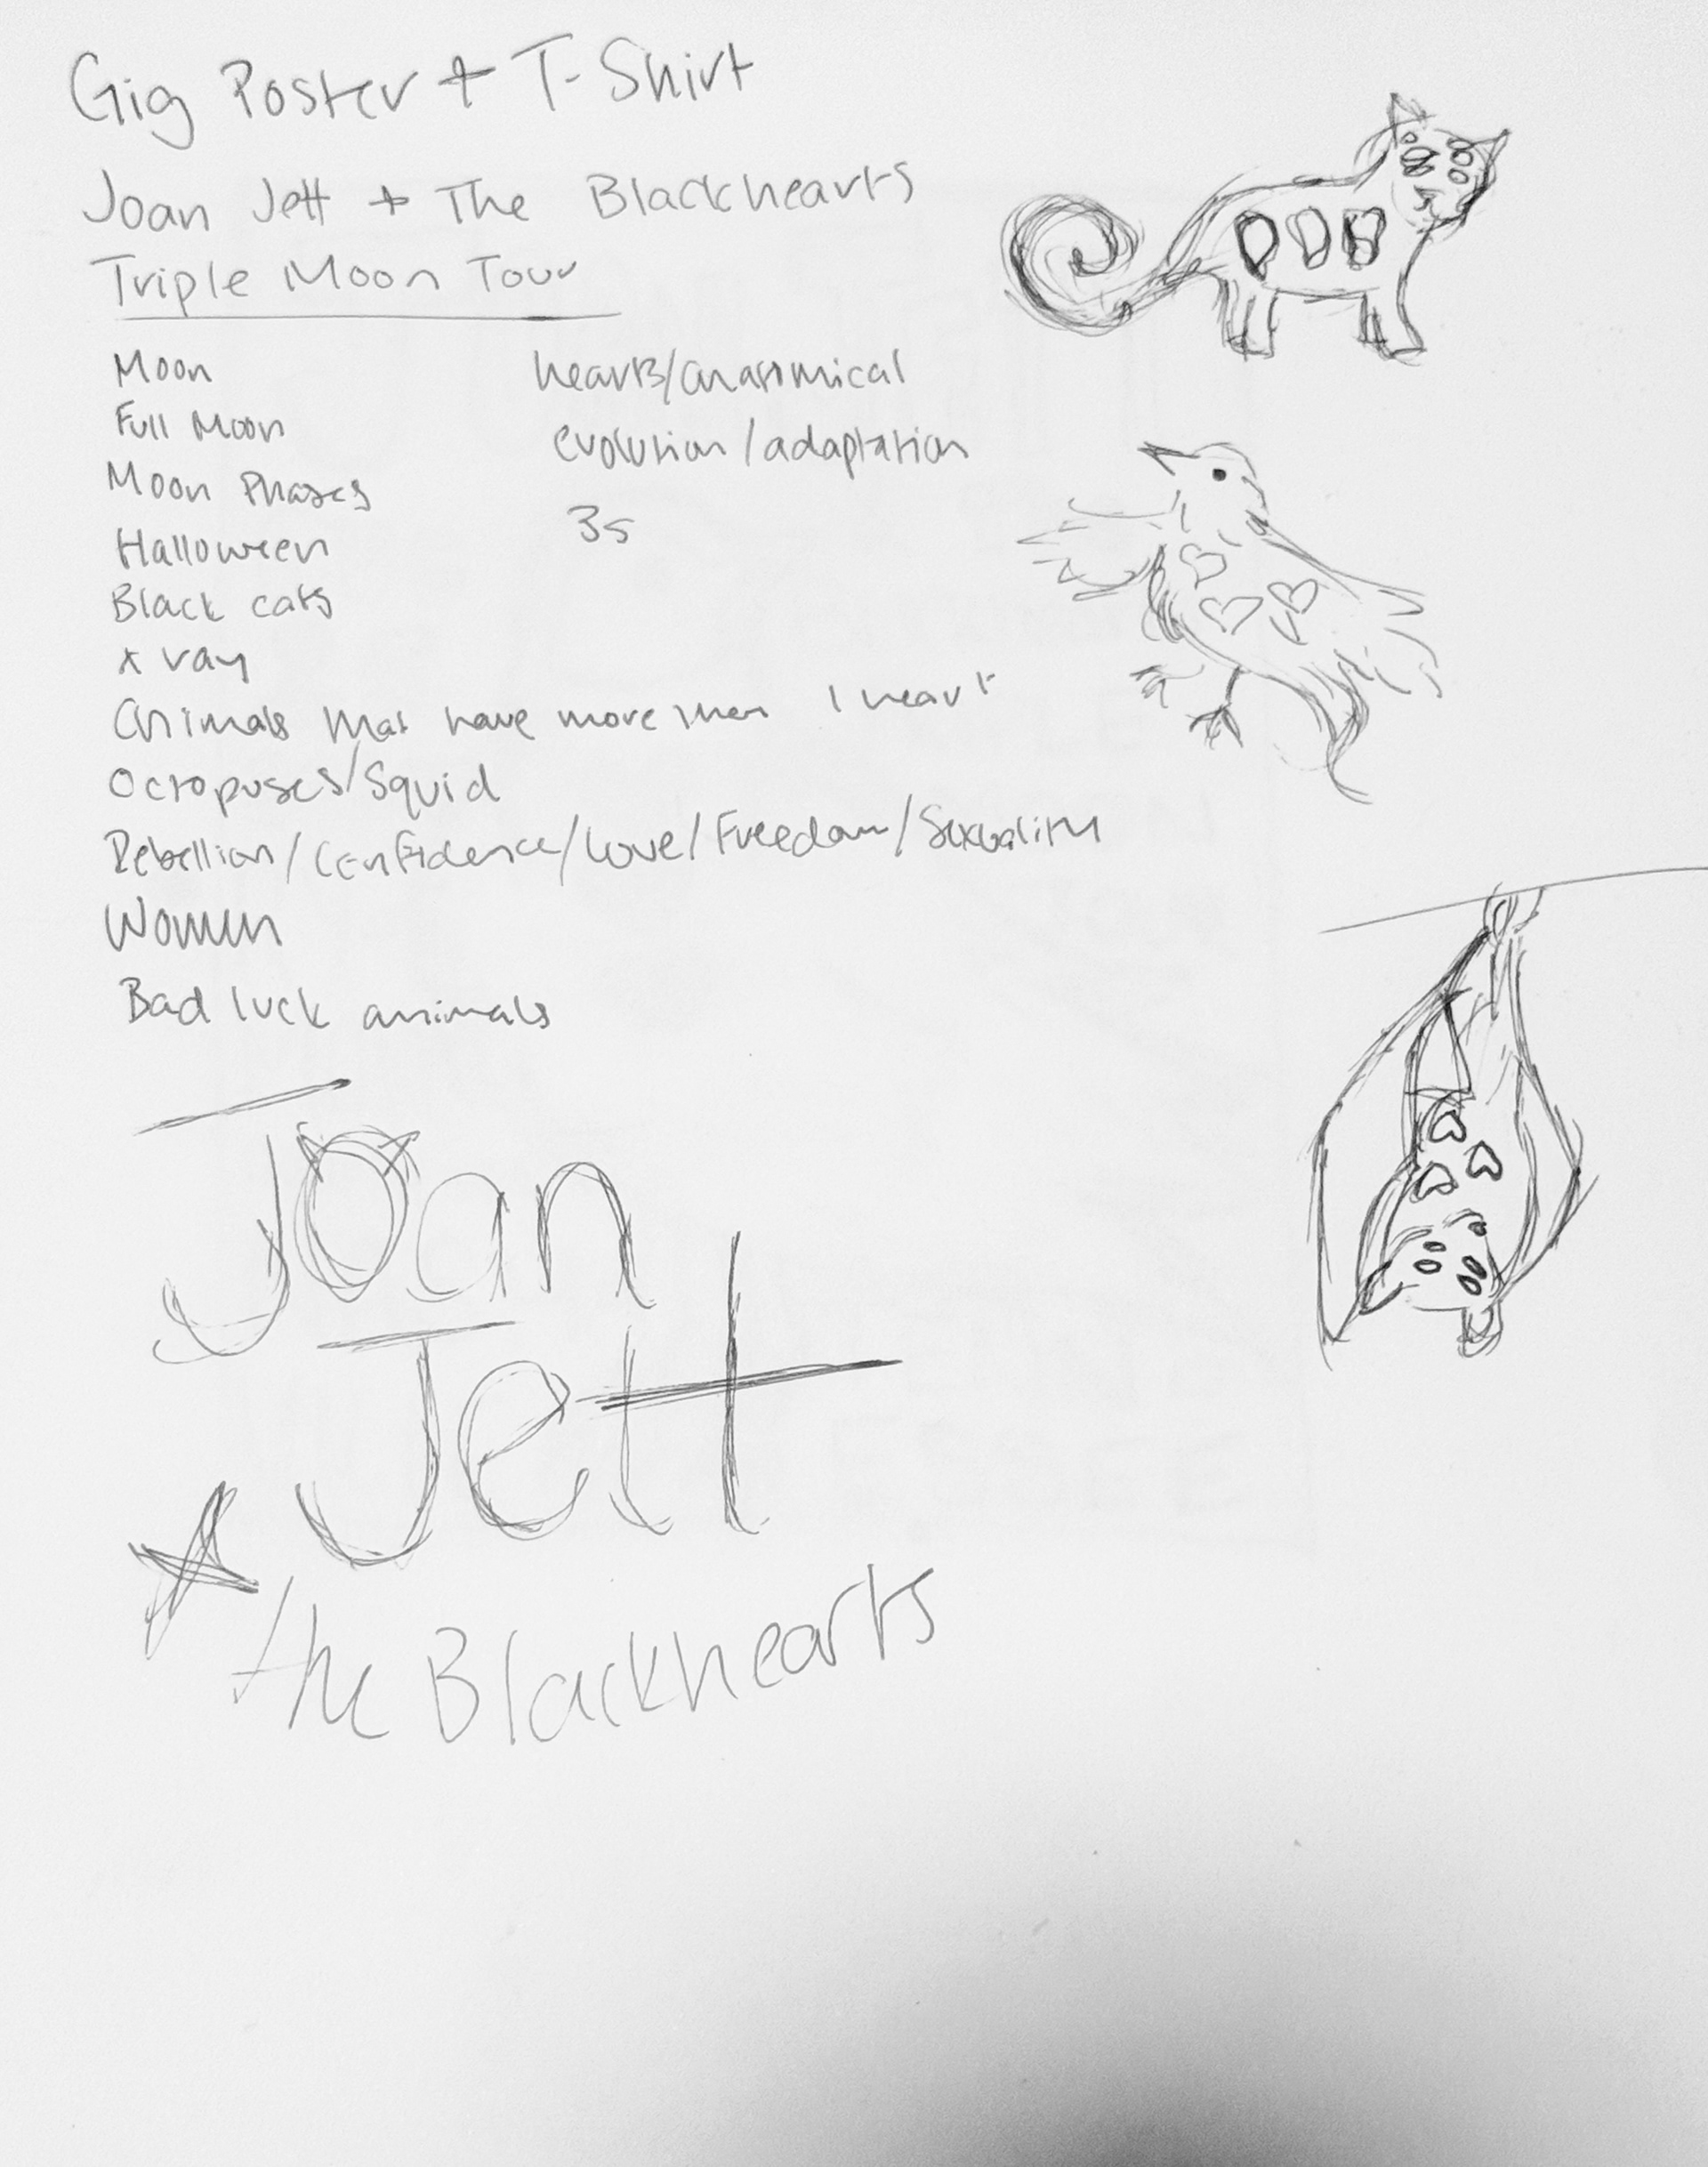 Gig Poster + T-Shirt
Joan Jett + The Blackhearts
Triple Moon Tour
Moon
Full Moon
Moon Phases
Halloween
Black cats
x ray
Animals that have more then 1 heart
Octopuses/Squid
Rebellion/Confidence/Love/Freedom/Sexuality
Women
Bad luck animals
hearts/anatomical
evolution/adaptation
3s
Joan
Jett
+
the Blackhearts